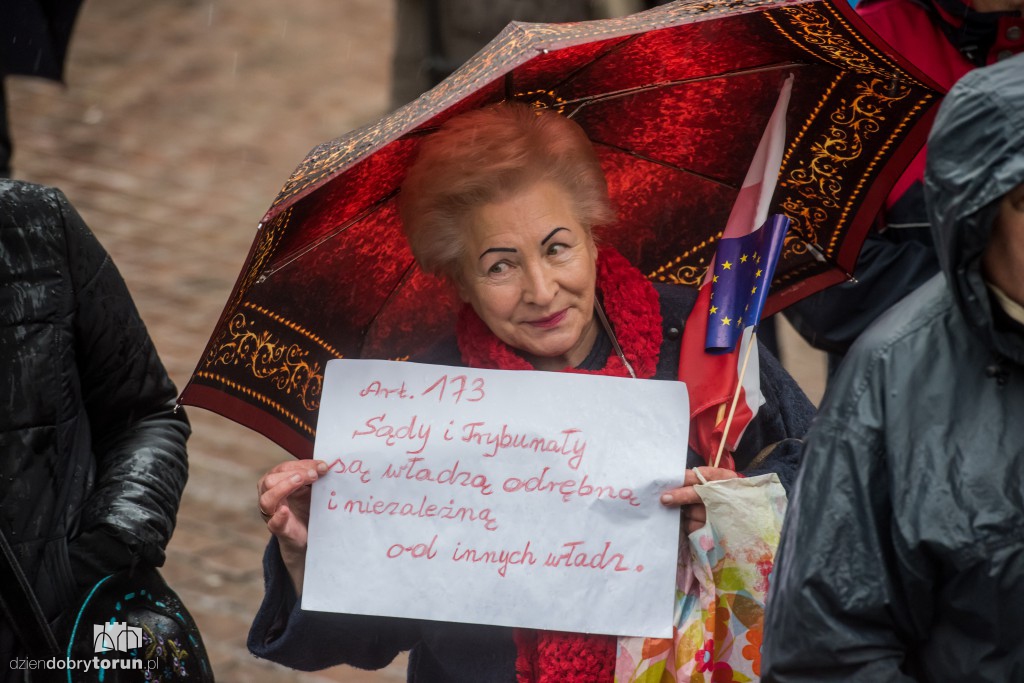 Art. 173
Sądy i Trybunały
są władzą odrębną
i niezależną
od innych władz.
dziendobrytorun.pl